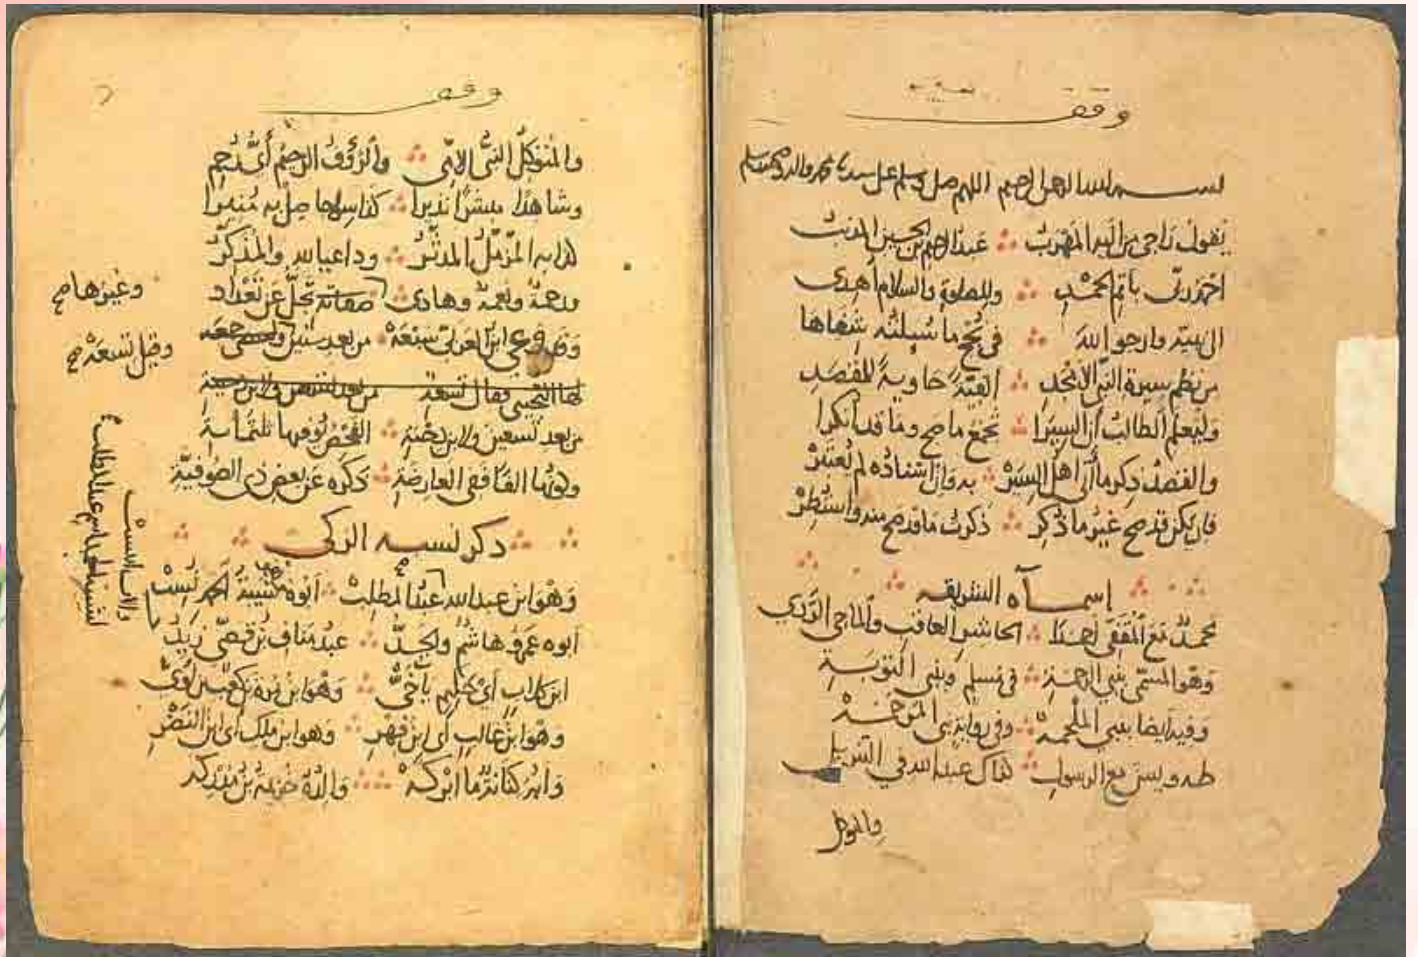 وقف
بسم الله الرحمن الرحيم اللهم صل وسلم على سيدنا محمد واله وصحبه وسلم
يقول راجي من اليه المهرب عبد الرحيم بن الحسين المذنب
احمد ربي باتم الحمد وللصلوة والسلام اهدي
الى نبيه وارجو الله في نجح ما سُيلته شفاها
من نظم سيرة النبي الامجد الفيّة حاوية للمقصد
وليعلم الطالب ان السيرا تجمع ما صح وما قد انكرا
والقصد ذكر ما اتى اهل السير به وان اسناده لم يعتبر
فان يكن قد صح غير ما ذكر ذكرت ما قد صح منه واستطر
اسماه الشريفه
محمد مع المقفي احمدا الحاشر العاقب والماحي الردى
وهو المسمى بنبي الرحمة في مسلم وبنبي التوبة
وفيه ايضا بنبي الملحمة وفي رواية نبي المرحمة
طه ويسن مع الرسول كذاك عبد الله في التنزيل
والمتوكل
وقف
والمتوكل النبي الامي والرؤف الرحيم اي رحم
وشاهدا مبشرا نذيرا كذا سراجا صل به منيرا
كذا به المزمل المدثر وداعيا لله والمذكر
ورحمة ونعمة وهادي صفاته تجل عن تعداد
وغيرها صح
وقد وعى ابن العربي سبعة من بعد ستين
وقيل تسعة صح
من بعد تسعين ولابن دحية الفحص يوفيها ثلثماية
وكونها الفا ففي العارضة ذكره عن بعض ذي الصوفية
ذكر نسبه الزكي
وهو ابن عبد الله عبد المطلب ابوه شيبة الحمد نسب
ابوه عمرو هاشم والجد عبد مناف بن قصي زيد
ابن كلاب اي حكيم يا اخي وهو ابن مرة بن كعب بن لؤي
وهو ابن غالب اي ابن فهر وهو ابن ملك اي ابن النضر
واب كنانة ما ابركه والده خزيمة بن مدركه